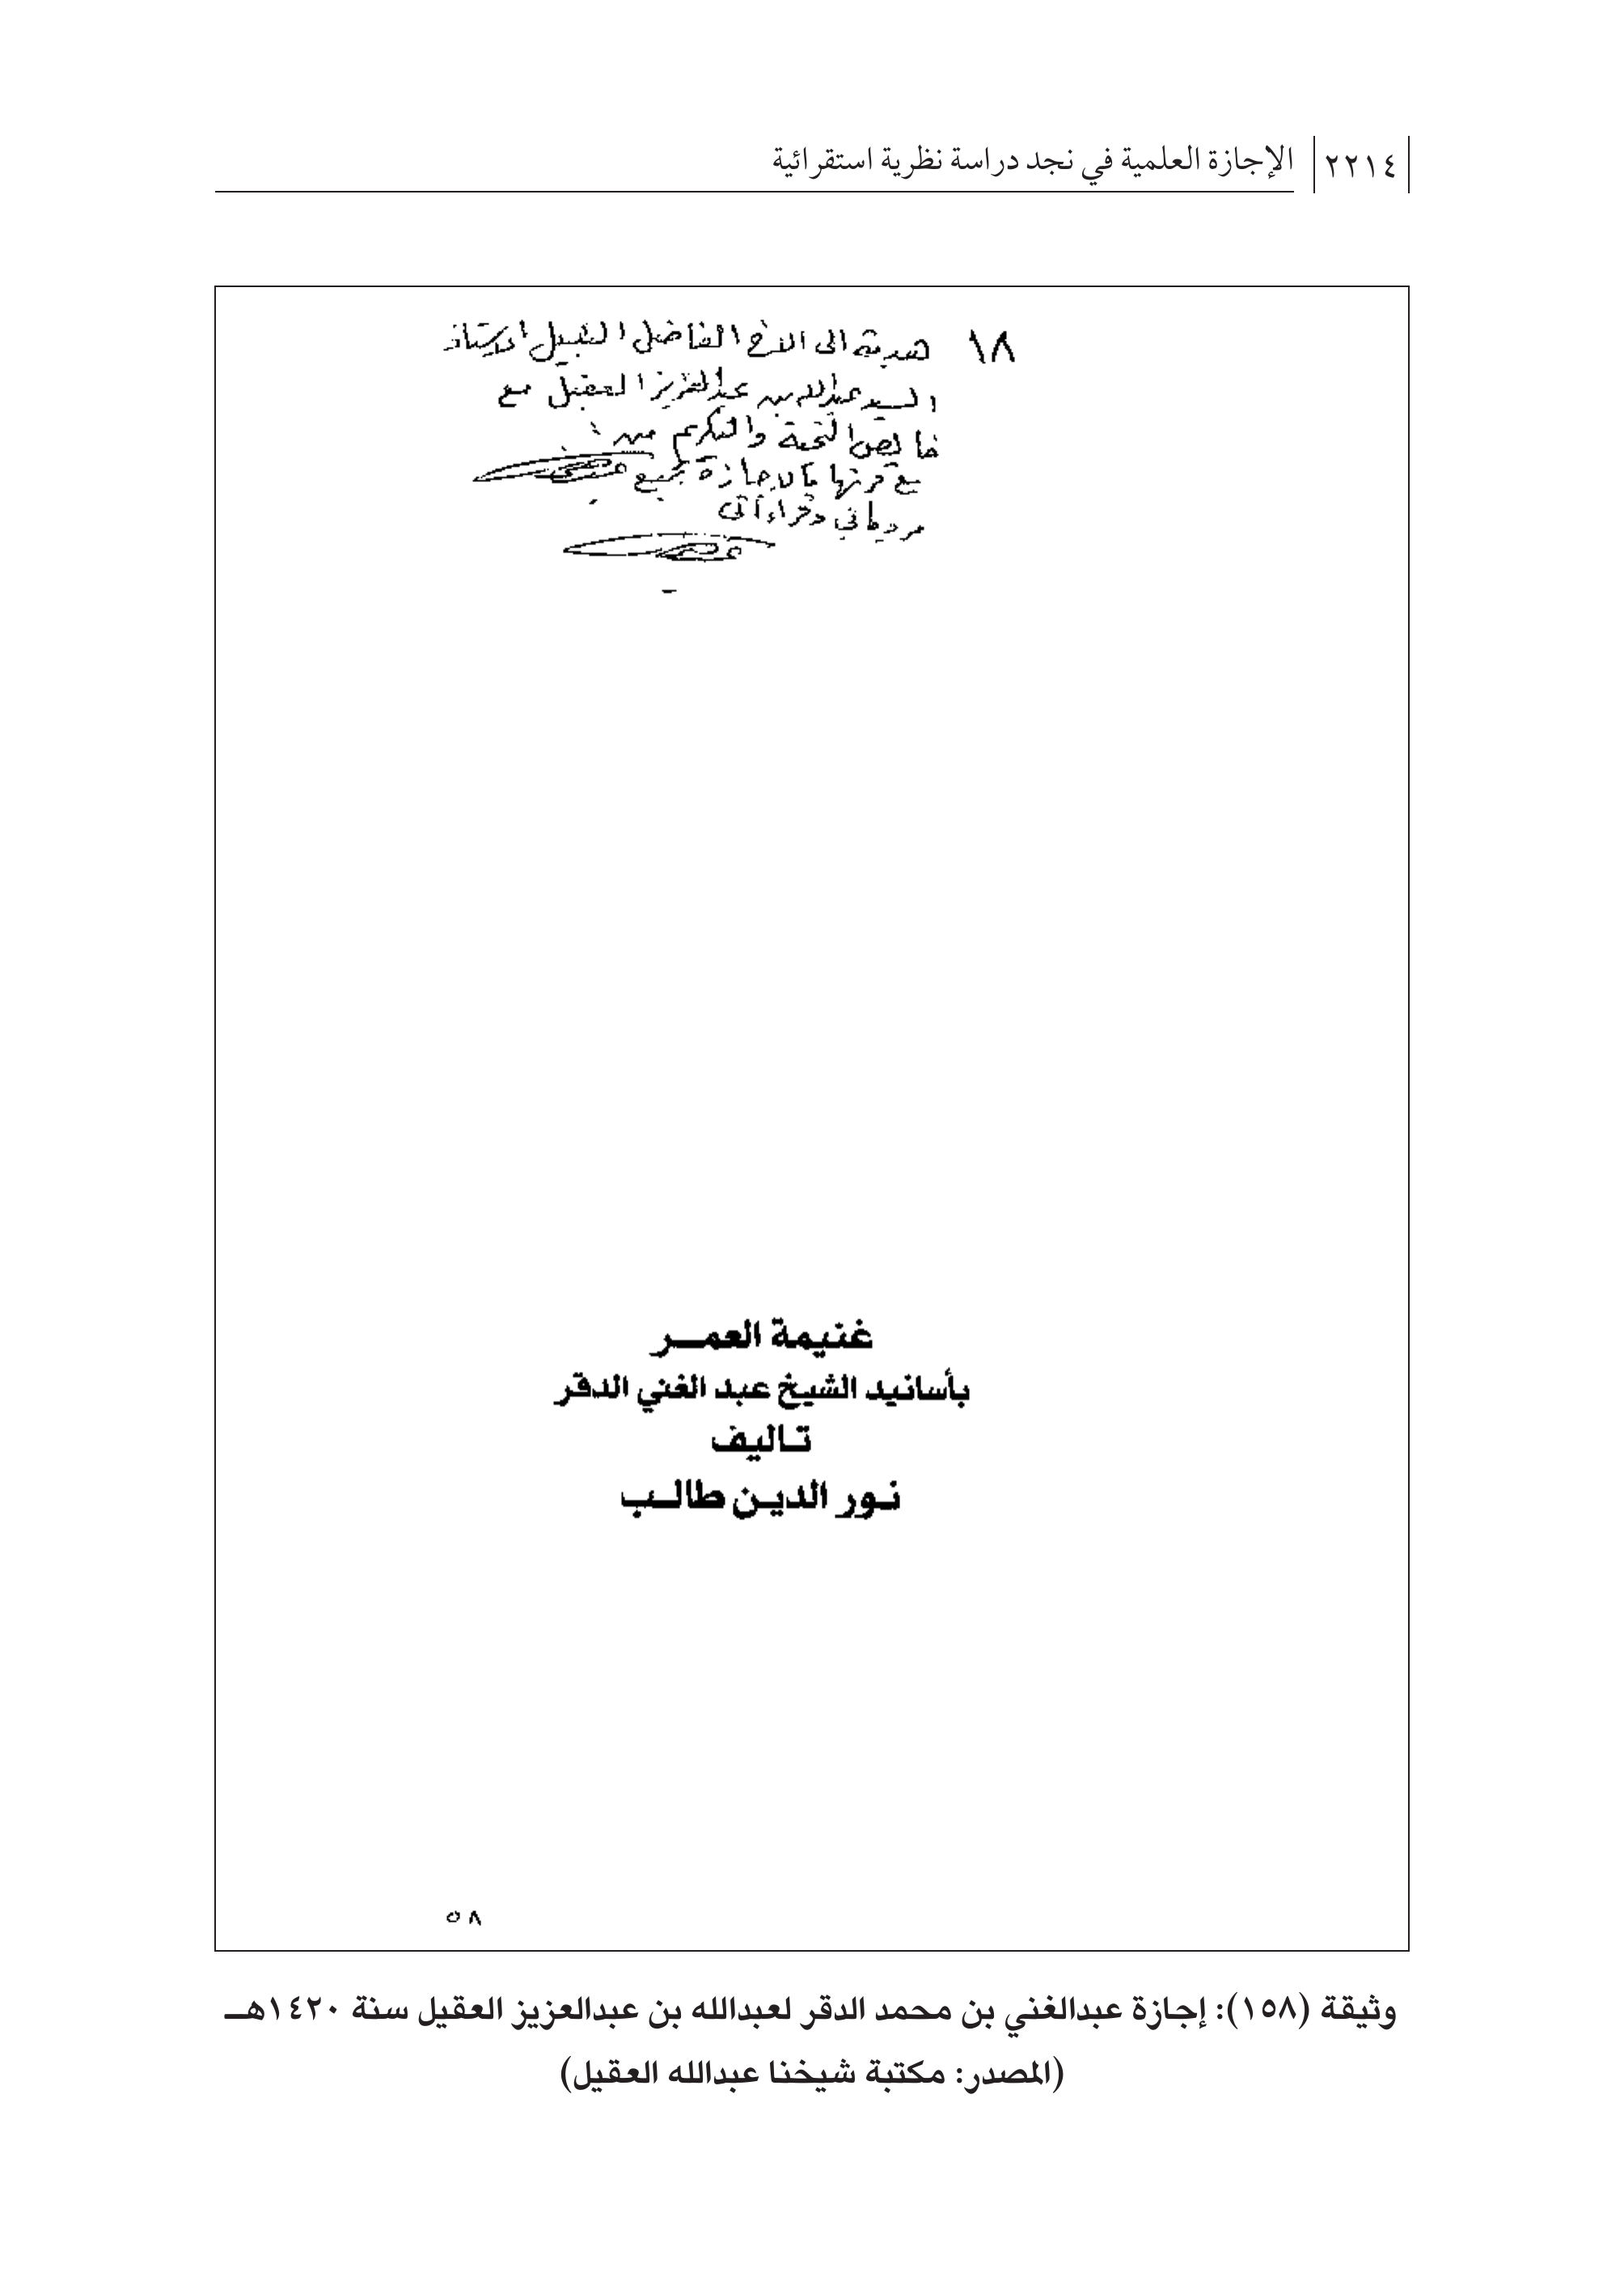 ٢٢١٤ الإجازة العلمية في نجد دراسة نظرية استقرائية
١٨ هدية الى الاخ الفاضل النبيل الاستاذ
السيد عبدالله بن عبدالعزيز العقيل مع
خالص التحية والتكريم من
مع قرنها بالاجازة بجميع
مروياتي وقراءاتي
غنيمة العمـر
بأسانيد الشيخ عبد الغني الدقر
تـاليف
نـور الديـن طالـب
٥٨
وثيقة (١٥٨): إجازة عبدالغني بن محمد الدقر لعبدالله بن عبدالعزيز العقيل سنة ١٤٢٠هـ
(المصدر: مكتبة شيخنا عبدالله العقيل)